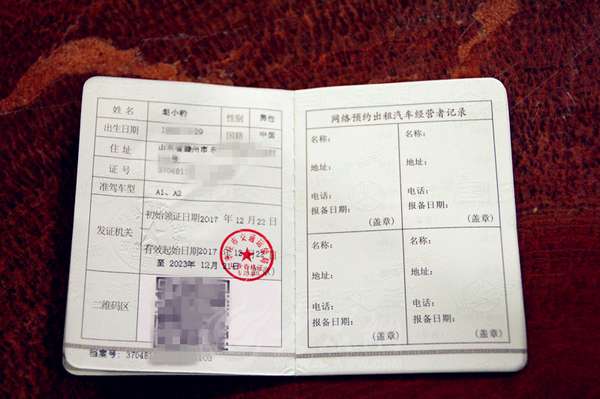 姓 名 小
性别 男性
出生日期 29
国籍 中国
住 址 山东省 州市
号
证 号 370481
准驾车型 A1、A2
发证机关
初始领证日期2017 年 12 月 22 日
有效起始日期2017 12 月 22
至 2023年 12 月
二维码区
档案号：370481 103
网络预约出租汽车经营者记录
名称：
地址：
电话：
报备日期：
(盖章)
名称：
地址：
电话：
报备日期：
(盖章)
名称：
地址：
电话：
报备日期：
(盖章)
名称：
地址：
电话：
报备日期：
(盖章)